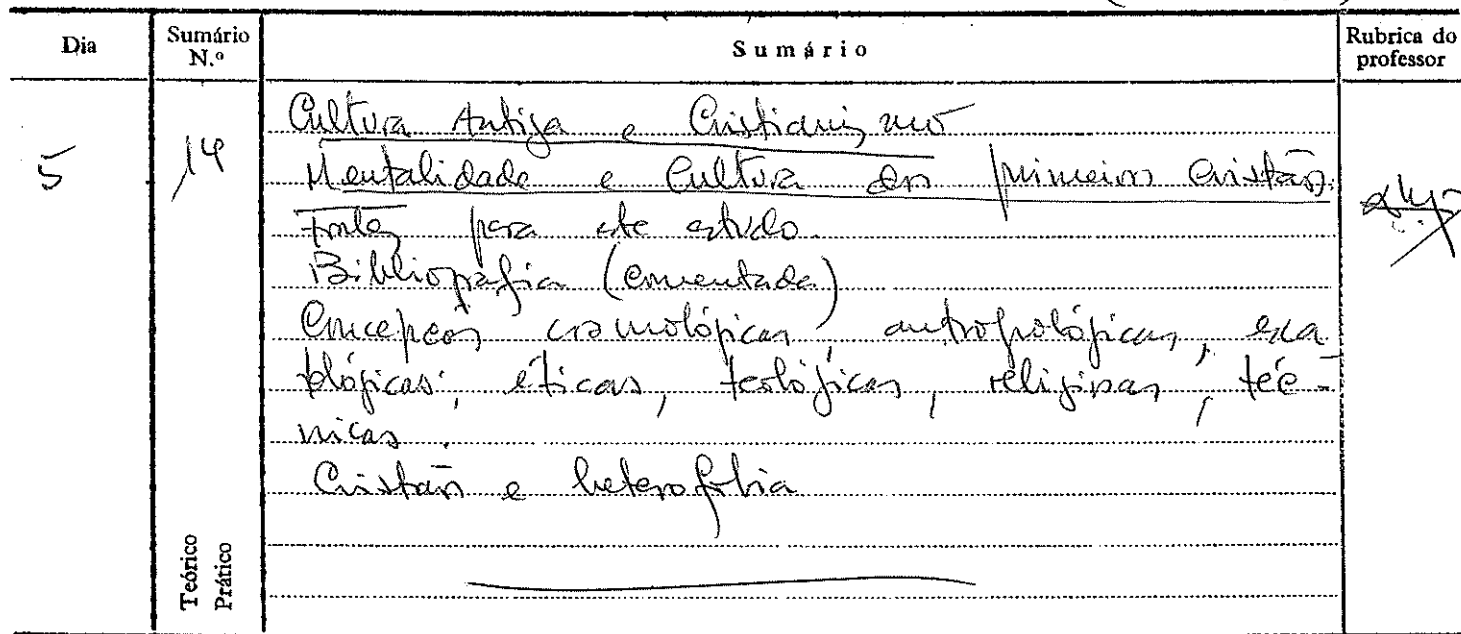 Dia
Sumário N.º
Sumário
Rubrica do professor
5
14
Cultura Antiga e Cristianismo
Mentalidade e Cultura dos primeiros Cristãos.
Fontes para este estudo.
Bibliografia (comentada)
Concepções cosmológicas, antropológicas, esca
tológicas, éticas, teológicas, religiosas, téc-
nicas.
Cristãos e heterofobia
Teórico
Prático